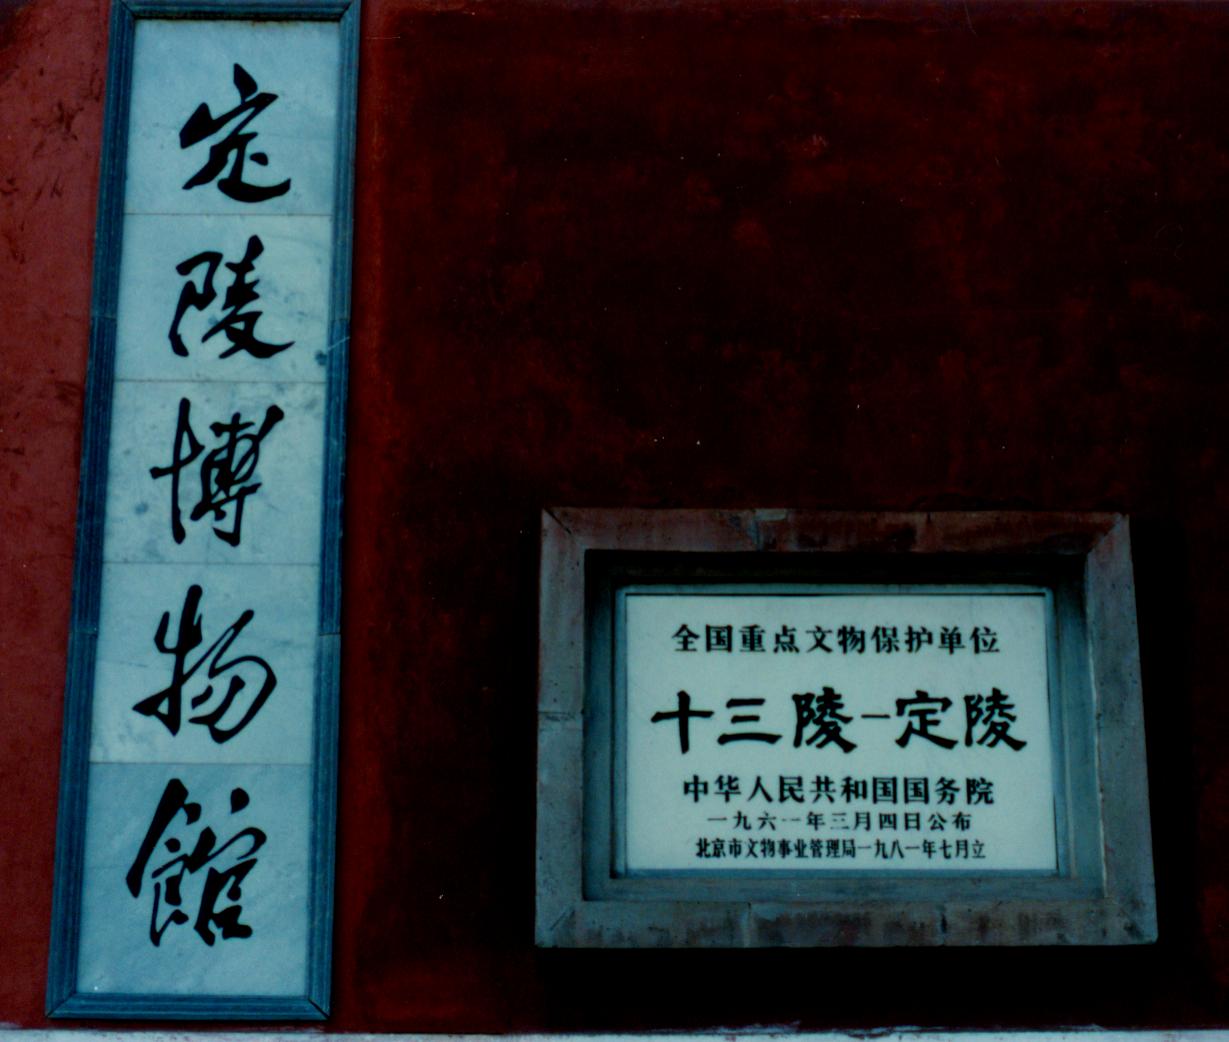 定陵博物館
全国重点文物保护单位
十三陵–定陵
中华人民共和国国务院
一九六一年三月四日公布
北京市文物事业管理局一九八一年七月立